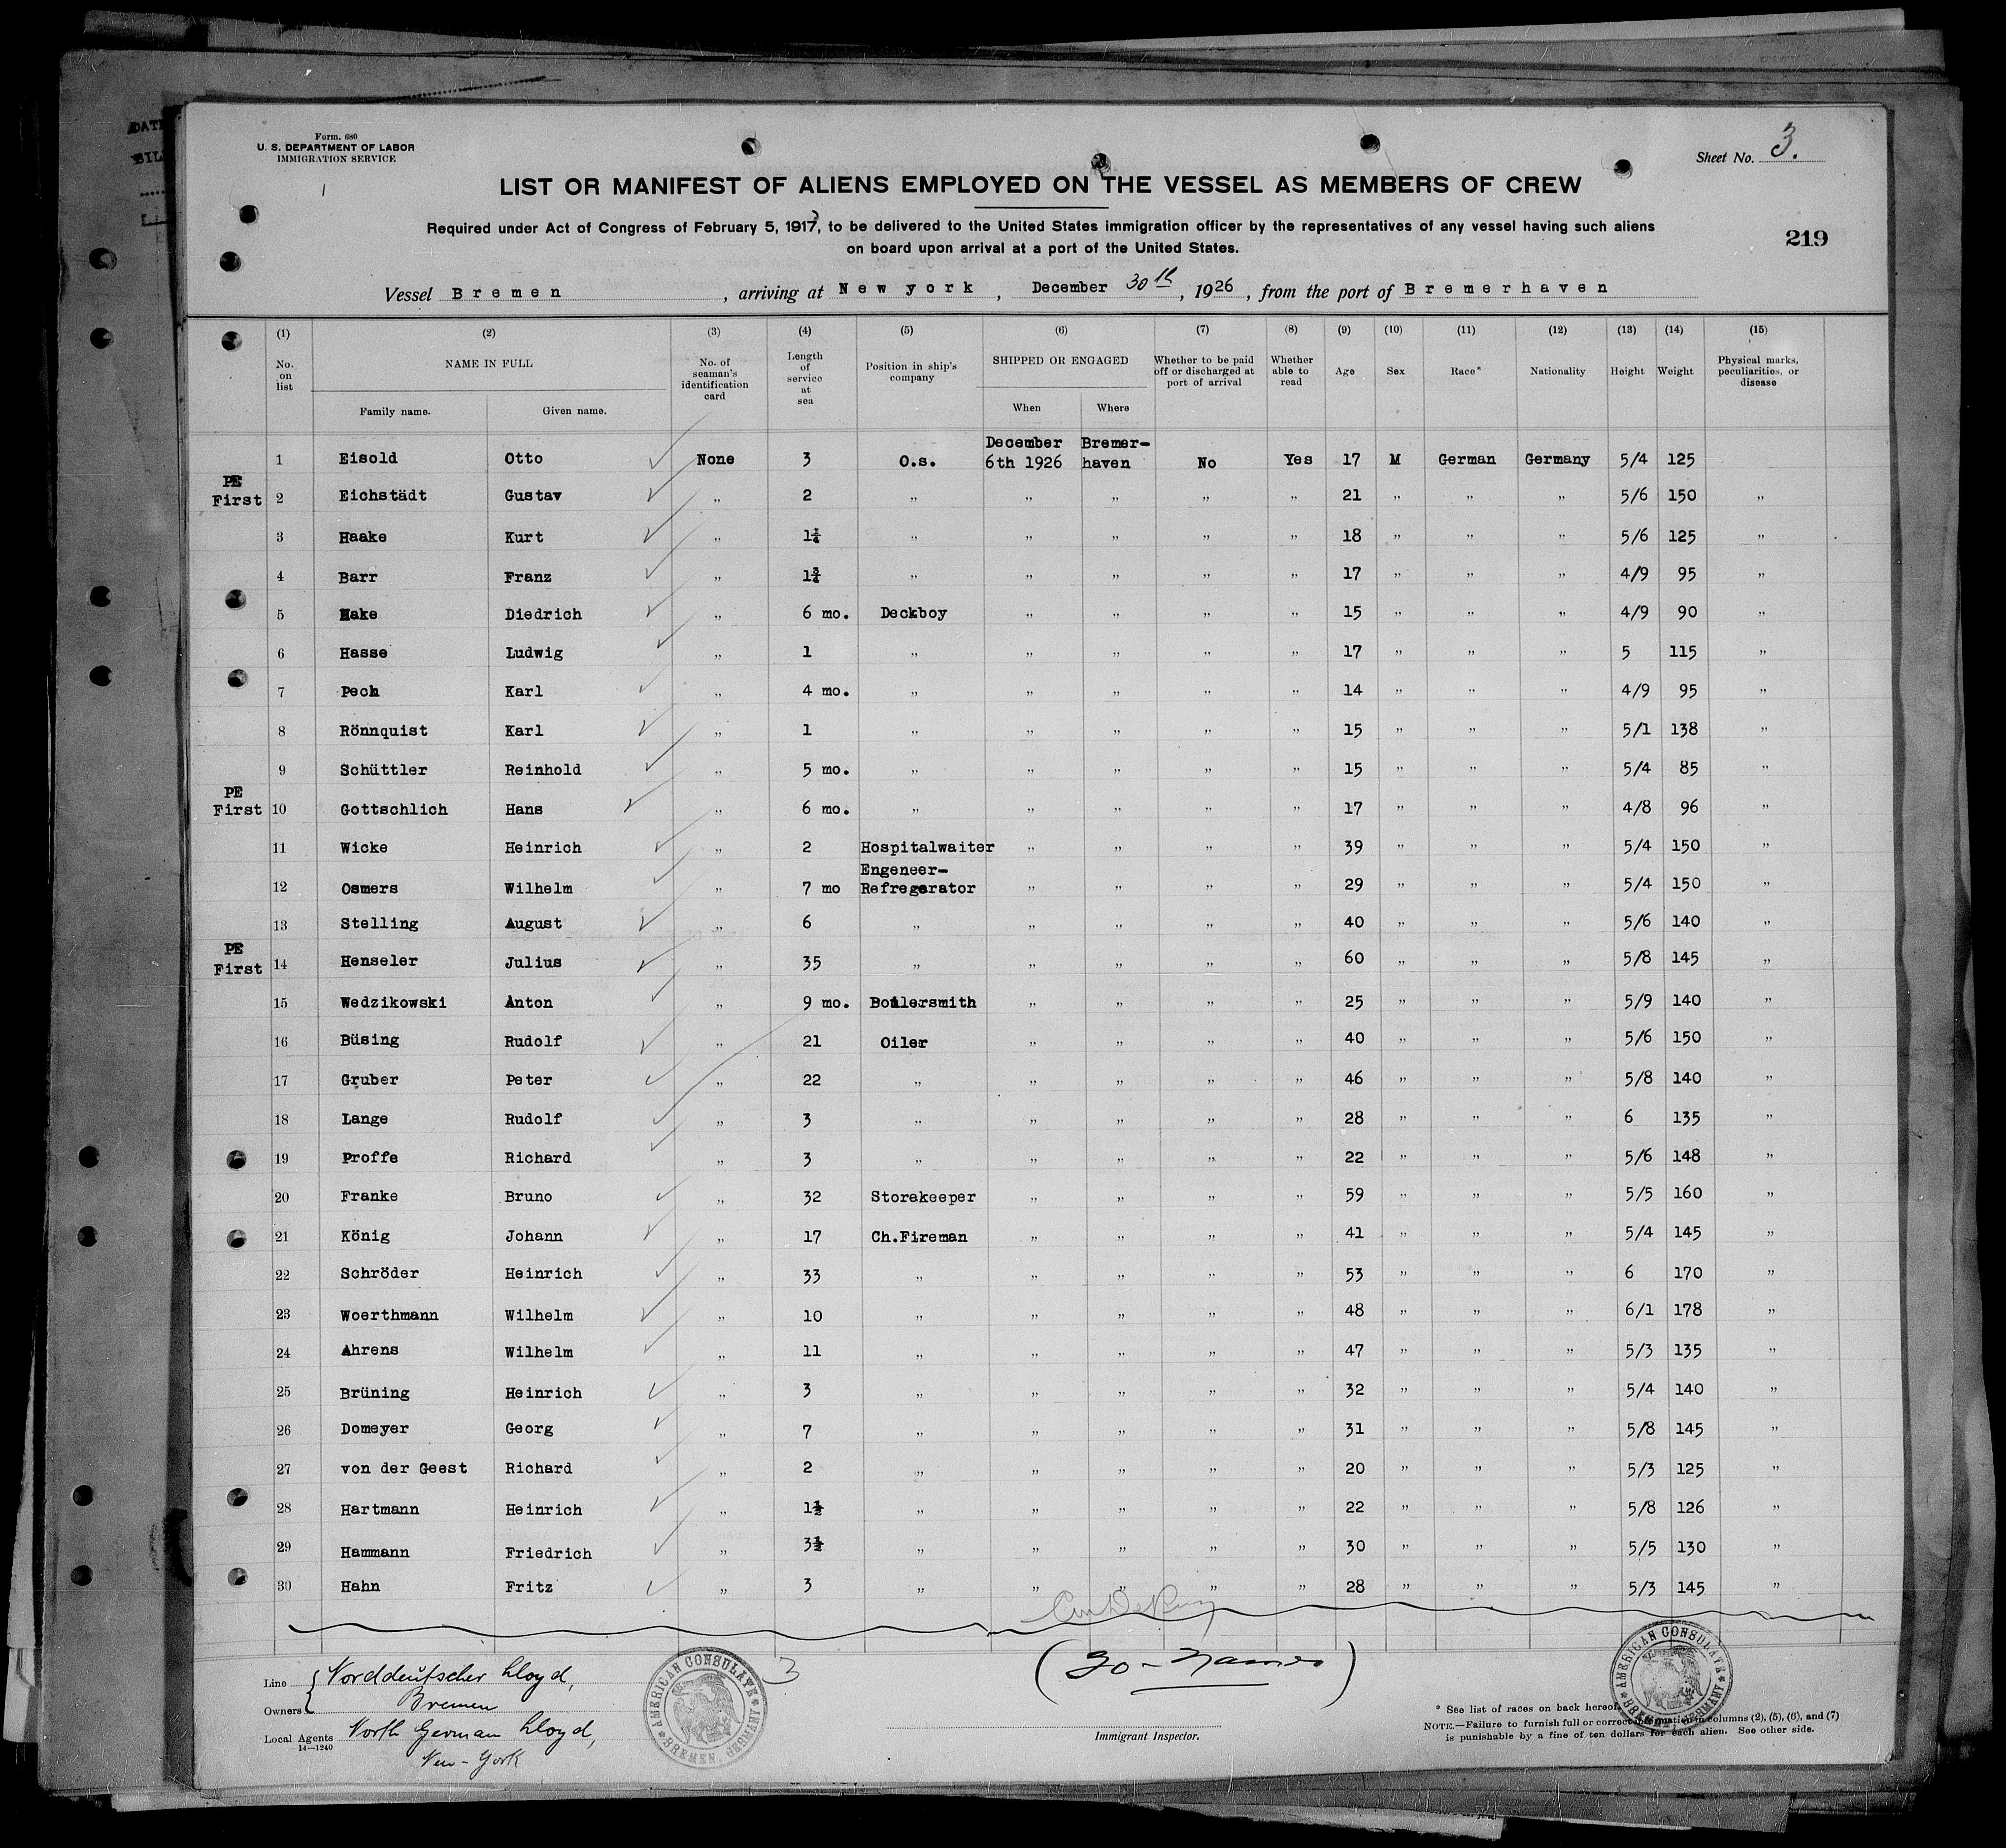 DATE
BIL
Form. 680
U. S. DEPARTMENT OF LABOR
IMMIGRATION SERVICE
Sheet No. 3.
LIST OR MANIFEST OF ALIENS EMPLOYED ON THE VESSEL AS MEMBERS OF CREW
Required under Act of Congress of February 5, 1917, to be delivered to the United States immigration officer by the representatives of any vessel having such aliens
on board upon arrival at a port of the United States.
219
Vessel Bremen, arriving at New york, December 30th, 1926, from the port of Bremerhaven
(1) (2) (3) (4) (5) (6) (7) (8) (9) (10) (11) (12) (13) (14) (15)
No. on list NAME IN FULL No. of seaman's identification card Length of service at sea Position in ship's company SHIPPED OR ENGAGED Whether to be paid off or discharged at port of arrival Whether able to read Age Sex Race* Nationality Height Weight Physical marks, peculiarities, or disease
Family name. Given name. When Where
1 Eisold Otto None 3 O.s. December 6th 1926 Bremer-haven No Yes 17 M German Germany 5/4 125
PE First 2 Eichstädt Gustav „ 2 „ „ „ „ „ 21 „ „ „ 5/6 150 „
3 Haake Kurt „ 1¼ „ „ „ „ „ 18 „ „ „ 5/6 125 „
4 Barr Franz „ 1¾ „ „ „ „ „ 17 „ „ „ 4/9 95 „
5 Hake Diedrich „ 6 mo. Deckboy „ „ „ „ 15 „ „ „ 4/9 90 „
6 Hasse Ludwig „ 1 „ „ „ „ „ 17 „ „ „ 5 115 „
7 Pech Karl „ 4 mo. „ „ „ „ „ 14 „ „ „ 4/9 95 „
8 Rönnquist Karl „ 1 „ „ „ „ „ 15 „ „ „ 5/1 138 „
9 Schüttler Reinhold „ 5 mo. „ „ „ „ „ 15 „ „ „ 5/4 85 „
PE First 10 Gottschlich Hans „ 6 mo. „ „ „ „ „ 17 „ „ „ 4/8 96 „
11 Wicke Heinrich „ 2 Hospitalwaiter „ „ „ „ 39 „ „ „ 5/4 150 „
12 Osmers Wilhelm „ 7 mo Engeneer-Refregerator „ „ „ „ 29 „ „ „ 5/4 150 „
13 Stelling August „ 6 „ „ „ „ „ 40 „ „ „ 5/6 140 „
PE First 14 Henseler Julius „ 35 „ „ „ „ „ 60 „ „ „ 5/8 145 „
15 Wedzikowski Anton „ 9 mo. Boilersmith „ „ „ „ 25 „ „ „ 5/9 140 „
16 Büsing Rudolf „ 21 Oiler „ „ „ „ 40 „ „ „ 5/6 150 „
17 Gruber Peter „ 22 „ „ „ „ „ 46 „ „ „ 5/8 140 „
18 Lange Rudolf „ 3 „ „ „ „ „ 28 „ „ „ 6 135 „
19 Proffe Richard „ 3 „ „ „ „ „ 22 „ „ „ 5/6 148 „
20 Franke Bruno „ 32 Storekeeper „ „ „ „ 59 „ „ „ 5/5 160 „
21 König Johann „ 17 Ch.Fireman „ „ „ „ 41 „ „ „ 5/4 145 „
22 Schröder Heinrich „ 33 „ „ „ „ „ 53 „ „ „ 6 170 „
23 Woerthmann Wilhelm „ 10 „ „ „ „ „ 48 „ „ „ 6/1 178 „
24 Ahrens Wilhelm „ 11 „ „ „ „ „ 47 „ „ „ 5/3 135 „
25 Brüning Heinrich „ 3 „ „ „ „ „ 32 „ „ „ 5/4 140 „
26 Domeyer Georg „ 7 „ „ „ „ „ 31 „ „ „ 5/8 145 „
27 von der Geest Richard „ 2 „ „ „ „ „ 20 „ „ „ 5/3 125 „
28 Hartmann Heinrich „ 1½ „ „ „ „ „ 22 „ „ „ 5/8 126 „
29 Hammann Friedrich „ 3½ „ „ „ „ „ 30 „ „ „ 5/5 130 „
30 Hahn Fritz „ 3 „ „ „ „ „ 28 „ „ „ 5/3 145 „
Line Norddeutscher Lloyd,
Owners Bremen
Local Agents North German Lloyd,
14—1240
New-York
AMERICAN CONSULATE BREMEN, GERMANY
3
(30 - Names)
Immigrant Inspector.
AMERICAN CONSULATE BREMEN, GERMANY
* See list of races on back hereof.
NOTE.—Failure to furnish full or correct information in columns (2), (5), (6), and (7)
is punishable by a fine of ten dollars for each alien. See other side.